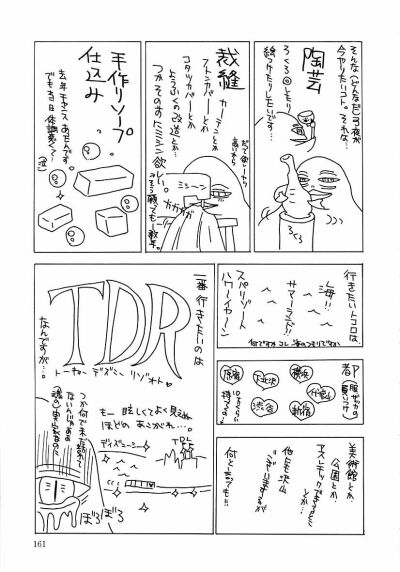 そんな(どんなだ!)夜が
今やりたいコト。それは…
陶芸
ろくろ回したり
絵つけたりしたいです…
ろくろ
裁縫
カーテンとか
フトンカバーとか
コタツカバーとか
ようふくの改造とか…
つかその前にミシン欲しい。
ミシーン
ガガガガ
手作りソープ
仕込み
去年チャンス あったんです
でも当日 体調悪くて…
(泣)
行きたいトコロは
海!!
サマーランド!!
スパリゾート
ハワーイヤーン
都
原宿
下北沢
横浜
代官山
渋谷
新宿
美術館とか
公園とか
アスレチックできるトコとか…
他にも沢山
ございますが
何と言っても…
一番 行きたいのは
TDR
トーキョー ディズニー リゾォトぉ。
なんですが…。
もー 眩しくてよく見えぬ
ほどの あこがれ…。
ディズニーシー
TDL
ぼろ
ぼろ
161